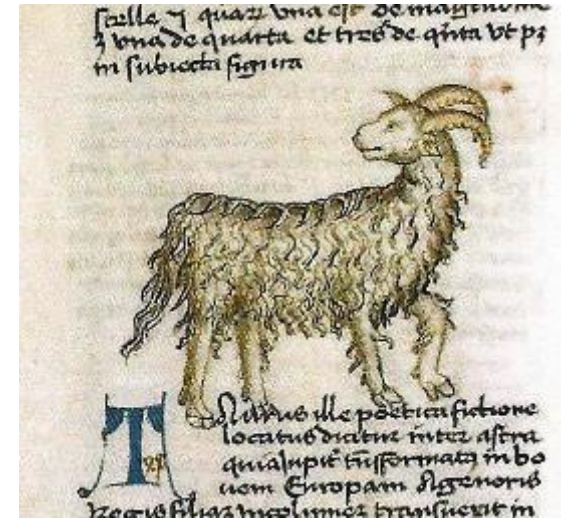 stelle 7 quarum una est de magnitudine
3 vna de quarta et tres de qnta vt pz
in subiecta figura
T
Aurus ille poetica fictione
locatus dicitur inter astra
quia iupit tnsformatq in bo
uem Europam Agenoris
Regis filiaz incolumez transuexit in